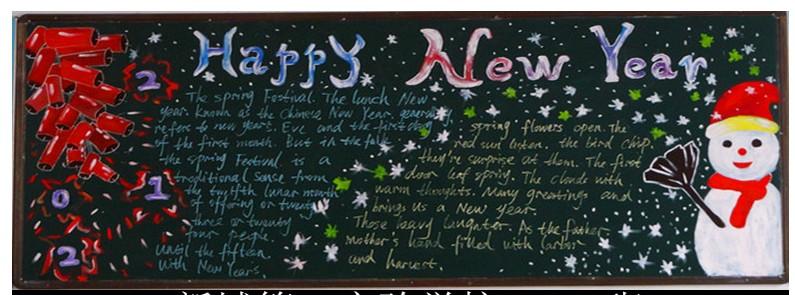 Happy New Year
2
0
1
2
The spring Festival. The lunch New
year known as the Chinese New Year, generally
refers to new years. Eve and the first day
of the first month. But in the folk
the spring Festival is a
traditional sense from
the twelfth lunar month
of offering or twenty
three or twenty
four people
until the fifteen
with New Years.
spring flowers open. The
red sun listen. the bird chip.
they're surprise at them. The first
door leaf spring. The clouds with
warm thoughts. Many greetings and
brings us a New year.
Those heavy laughter. As the father
mother's hand filled with labor
and harvest.